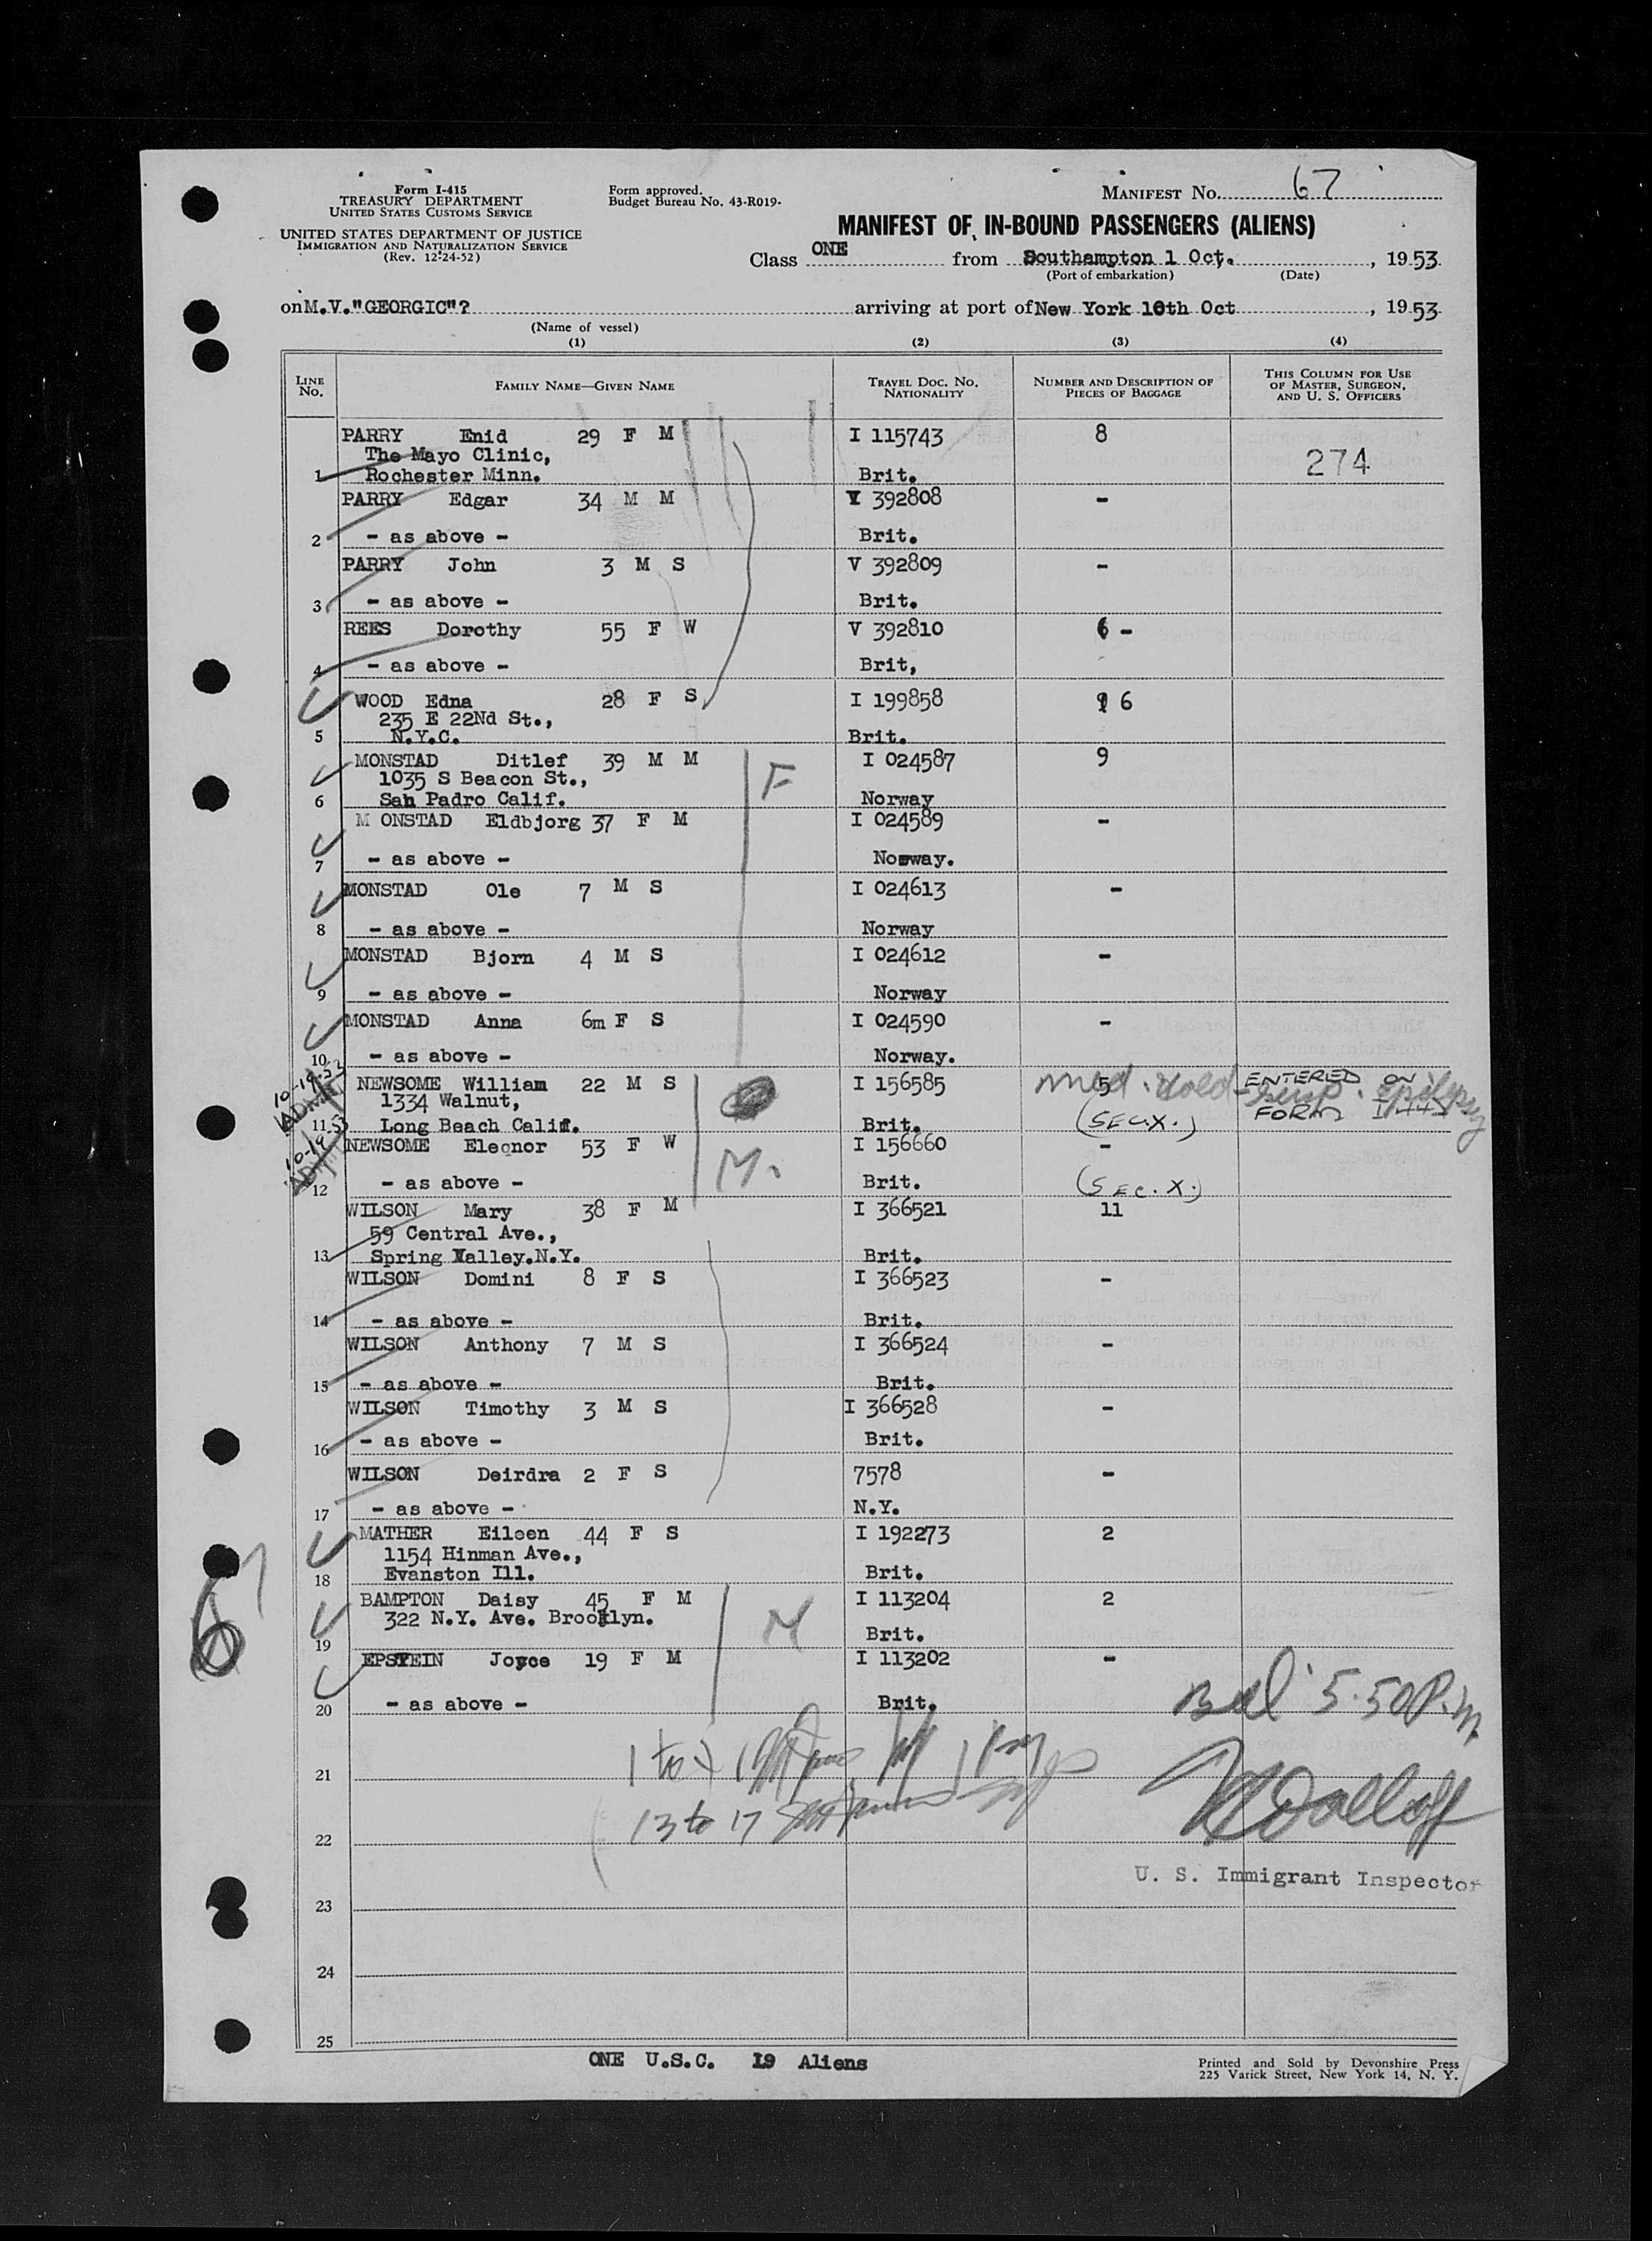 Form I-415
TREASURY DEPARTMENT
UNITED STATES CUSTOMS SERVICE
UNITED STATES DEPARTMENT OF JUSTICE
IMMIGRATION AND NATURALIZATION SERVICE
(Rev. 12-24-52)
Form approved.
Budget Bureau No. 43-R019-
MANIFEST NO. 67
MANIFEST OF IN-BOUND PASSENGERS (ALIENS)
Class ONE from Southampton 1 Oct. , 1953
(Port of embarkation) (Date)
on M.V."GEORGIC"? arriving at port of New York 10th Oct , 1953
(Name of vessel)
(1) (2) (3) (4)
LINE No. FAMILY NAME—GIVEN NAME TRAVEL DOC. NO. NATIONALITY NUMBER AND DESCRIPTION OF PIECES OF BAGGAGE THIS COLUMN FOR USE OF MASTER, SURGEON, AND U. S. OFFICERS
PARRY Enid 29 F M I 115743 8
The Mayo Clinic, 274
1 Rochester Minn. Brit.
PARRY Edgar 34 M M V 392808 -
2 - as above - Brit.
PARRY John 3 M S V 392809 -
3 - as above - Brit.
REES Dorothy 55 F W V 392810 6 -
4 - as above - Brit,
WOOD Edna 28 F S I 199858 6
235 E 22Nd St.,
5 N.Y.C. Brit.
MONSTAD Ditlef 39 M M F I 024587 9
1035 S Beacon St.,
6 San Padro Calif. Norway
M ONSTAD Eldbjorg 37 F M I 024589 -
7 - as above - Norway.
MONSTAD Ole 7 M S I 024613 -
8 - as above - Norway
MONSTAD Bjorn 4 M S I 024612 -
9 - as above - Norway
MONSTAD Anna 6m F S I 024590 -
10 - as above - Norway.
10-19-53 ADMIT
NEWSOME William 22 M S I 156585 5 med. hold - susp. epilepsy ENTERED ON
1334 Walnut, FORM I-445
11 Long Beach Calif. Brit. (SEC.X.)
10-19 53 ADMIT
NEWSOME Eleonor 53 F W M. I 156660 -
12 - as above - Brit. (SEC.X.)
WILSON Mary 38 F M I 366521 11
59 Central Ave.,
13 Spring Valley.N.Y. Brit.
WILSON Domini 8 F S I 366523 -
14 - as above - Brit.
WILSON Anthony 7 M S I 366524 -
15 - as above - Brit.
WILSON Timothy 3 M S I 366528 -
16 - as above - Brit.
WILSON Deirdra 2 F S 7578 -
17 - as above - N.Y.
MATHER Eileen 44 F S I 192273 2
1154 Hinman Ave.,
18 Evanston Ill. Brit.
67
BAMPTON Daisy 45 F M M I 113204 2
322 N.Y. Ave. Brooklyn.
19 Brit.
EPSTEIN Joyce 19 F M I 113202 -
20 - as above - Brit.
5.50 P.M.
1 to
21
13 to 17
22
U. S. Immigrant Inspector
23
24
25
ONE U.S.C. 19 Aliens
Printed and Sold by Devonshire Press
225 Varick Street, New York 14, N. Y.